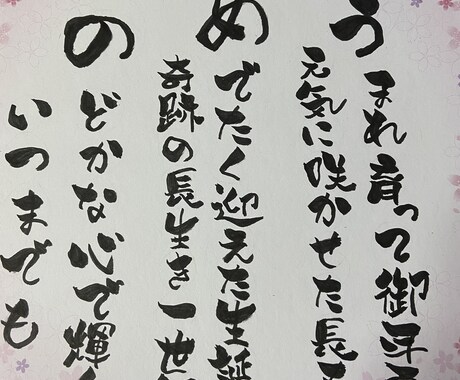 うまれ育って御年
元気に咲かせた長
めでたく迎えた生誕
奇跡の長生き一世
のどかな心で輝く
いつまでも